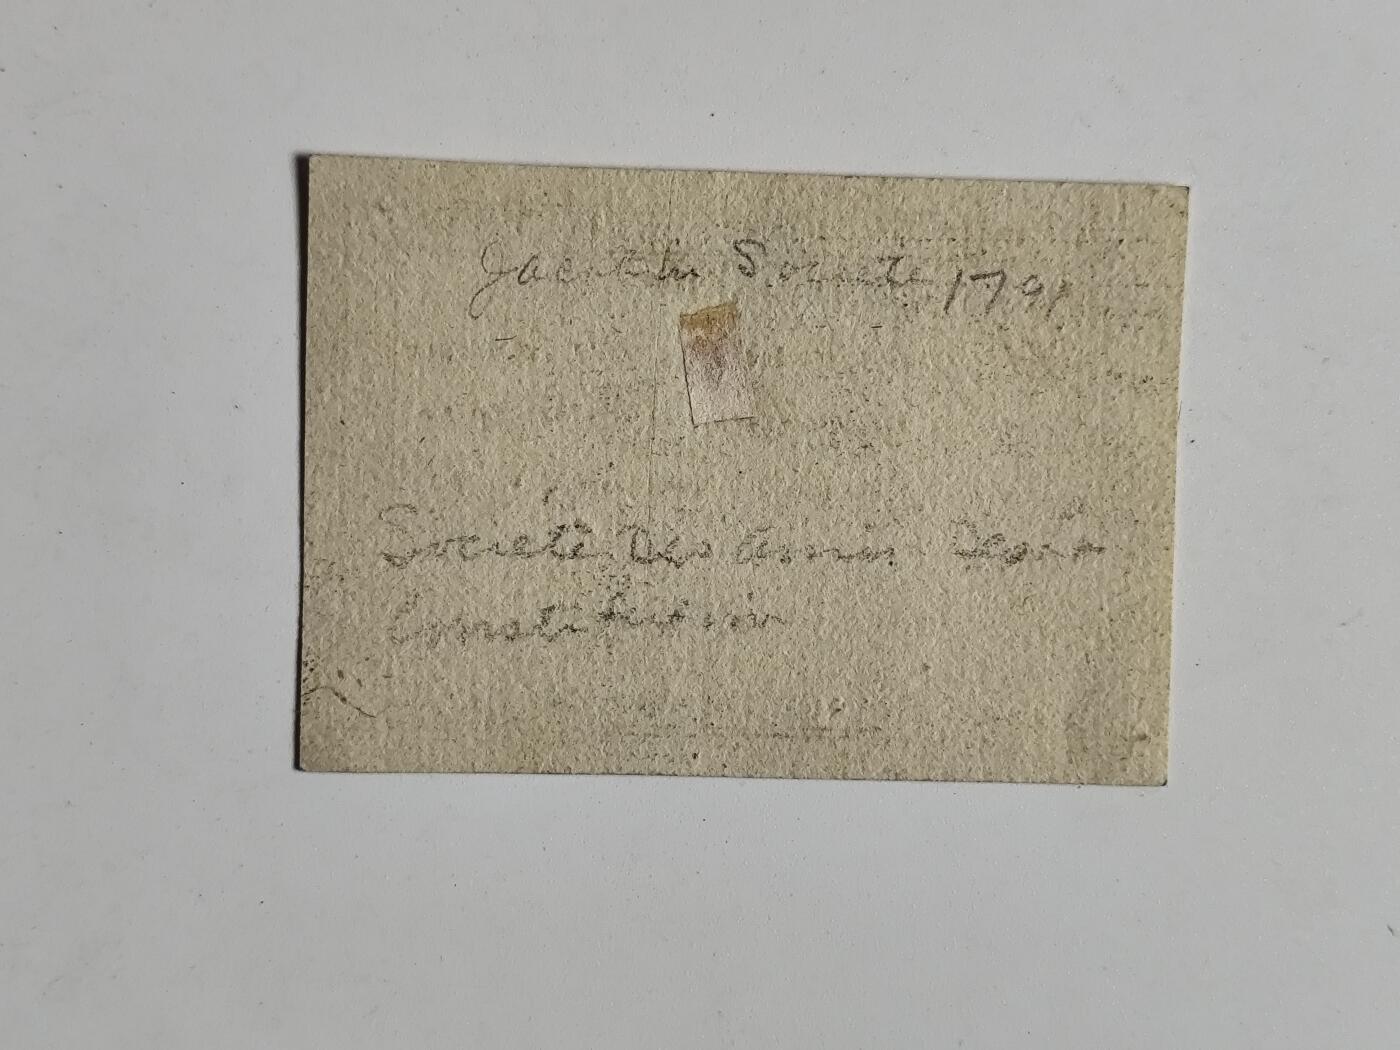 Jacobin Societe 1791
Societe Des Amis De La
Constitution